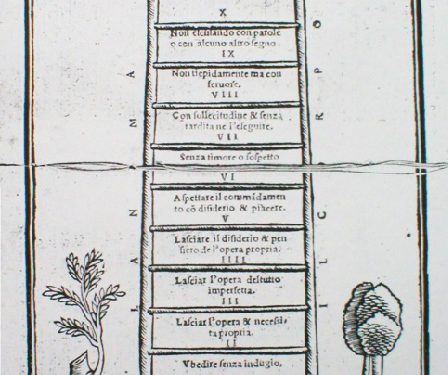 X
Non escusando con parole
o con alcuno altro segno
IX
Non tiepidamente ma con
feruore.
VIII
Con sollecitudine & senza
tardita ne l'eseguire.
VII
Senza timore o sospetto
VI
Aspettare il comandamen
to cõ disiderio & piacere.
V
Lasciare il disiderio & pen
siero de l'opera propria.
IIII
Lasciar l'opera del tutto
imperfetta.
III
Lasciar l'opera & necessi,
ta propria.
II
Vbedire senza indugio.
A
M
I
N
A
L
O
P
R
O
C
L
I